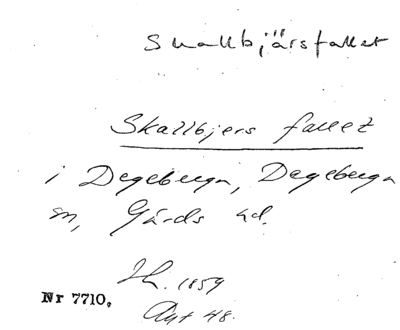 Skallbjärsfallet
Skallbjers fallet
i Degeberga, Degeberga
sn, Gärds hd.
Jh. 1859
Nr 7710,
Akt 48.